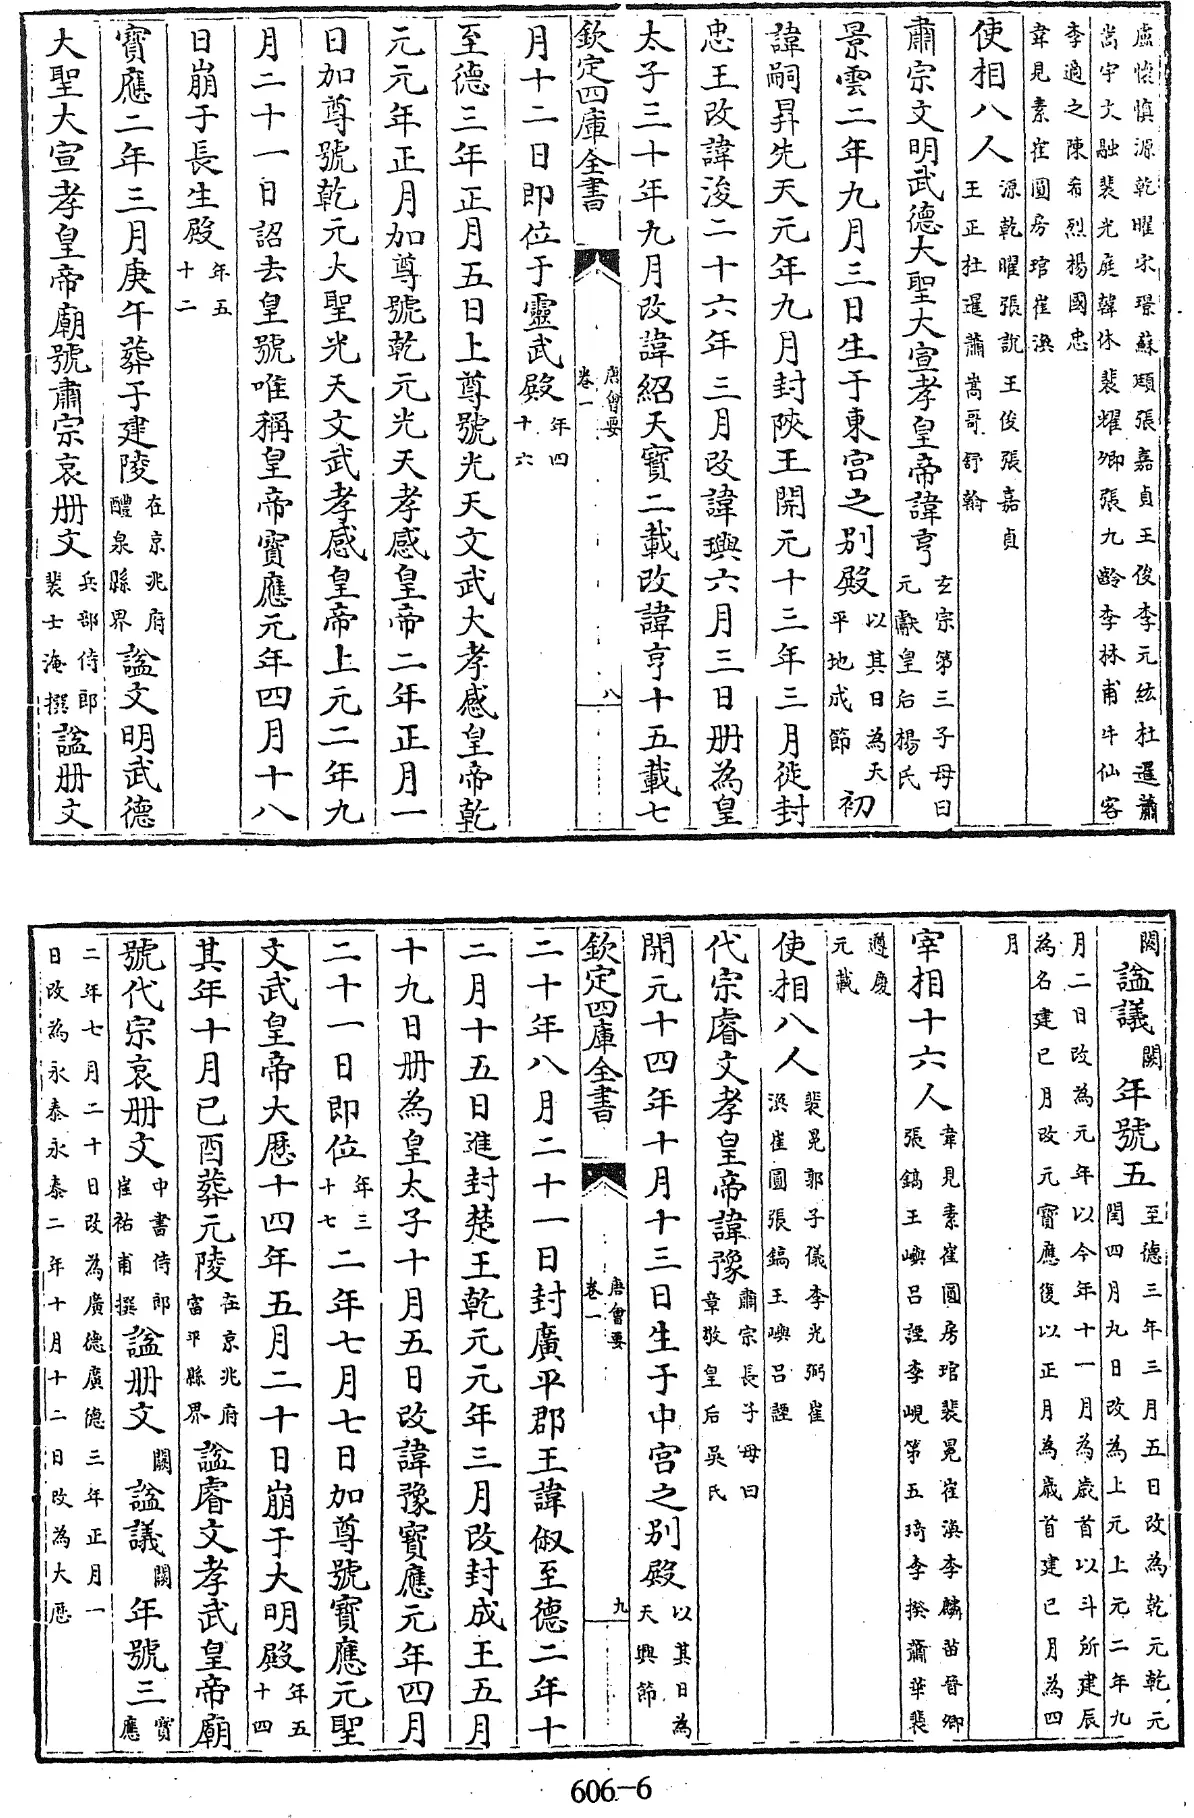 盧懷慎源乾曜宋璟蘇頲張嘉貞王俊李元紘杜暹蕭
嵩宇文融裴光庭韓休裴耀卿張九齡李林甫牛仙客
李適之陳希烈楊國忠
韋見素崔圓房琯崔渙
使相八人源乾曜張説王俊張嘉貞王正杜暹蕭嵩哥舒翰
肅宗文明武德大聖大宣孝皇帝諱亨玄宗第三子母曰元獻皇后楊氏
景雲二年九月三日生于東宫之别殿以其日為天平地成節初
諱嗣昇先天元年九月封陜王開元十三年三月徙封
忠王改諱浚二十六年三月改諱璵六月三日册為皇
太子三十年九月改諱紹天寳二載改諱亨十五載七
欽定四庫全書
唐會要
卷一
八
月十二日即位于靈武殿年四十六
至德三年正月五日上尊號光天文武大孝感皇帝乾
元元年正月加尊號乾元光天孝感皇帝二年正月一
日加尊號乾元大聖光天文武孝感皇帝上元二年九
月二十一日詔去皇號唯稱皇帝寳應元年四月十八
日崩于長生殿年五十二
寳應二年三月庚午葬于建陵在京兆府醴泉縣界諡文明武德
大聖大宣孝皇帝廟號肅宗哀册文兵部侍郎裴士淹撰諡册文
闕諡議闕年號五至德三年三月五日改為乾元乾元閏四月九日改為上元上元二年九
月二日改為元年以今年十一月為歳首以斗所建辰
為名建巳月改元寳應復以正月為歳首建巳月為四
月
宰相十六人韋見素崔圓房琯裴冕崔渙李麟苗晉卿張鎬王嶼吕諲李峴第五琦李揆蕭華裴
遵慶
元載
使相八人裴冕郭子儀李光弼崔渙崔圓張鎬王嶼吕諲
代宗睿文孝皇帝諱豫肅宗長子母曰章敬皇后吳氏
開元十四年十月十三日生于中宫之别殿以其日為天興節
欽定四庫全書
唐會要
卷一
九
二十年八月二十一日封廣平郡王諱俶至德二年十
二月十五日進封楚王乾元元年三月改封成王五月
十九日册為皇太子十月五日改諱豫寳應元年四月
二十一日即位年三十七二年七月七日加尊號寳應元聖
文武皇帝大厯十四年五月二十日崩于大明殿年五十四
其年十月已酉葬元陵在京兆府富平縣界諡睿文孝武皇帝廟
號代宗哀册文中書侍郎崔祐甫撰諡册文闕諡議闕年號三寳應
二年七月二十日改為廣德廣德三年正月一
日改為永泰永泰二年十月十二日改為大厯
606-6